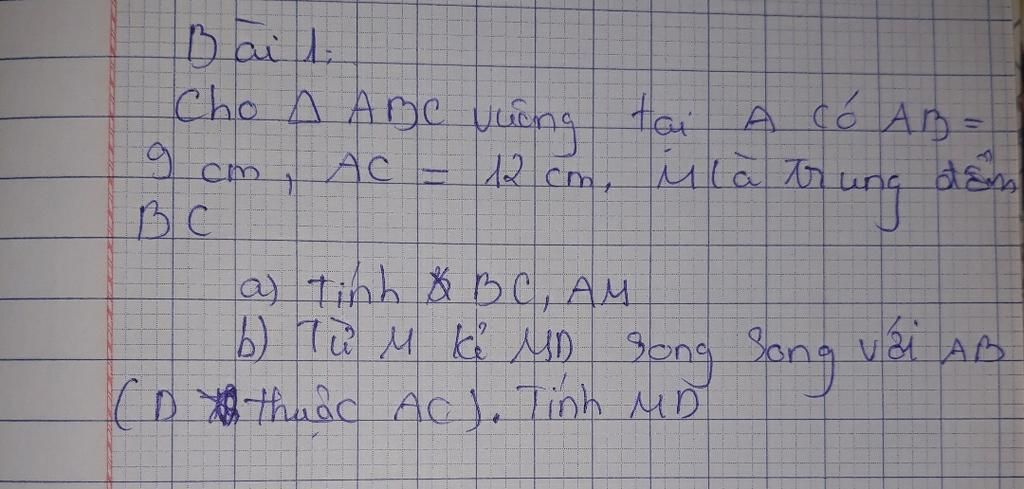 Bài 1:
Cho Δ ABC vuông tại A có AB =
9 cm, AC = 12 cm, M là trung điểm
BC
a) Tính BC, AM
b) Từ M kẻ MD song song với AB
(D thuộc AC). Tính MD